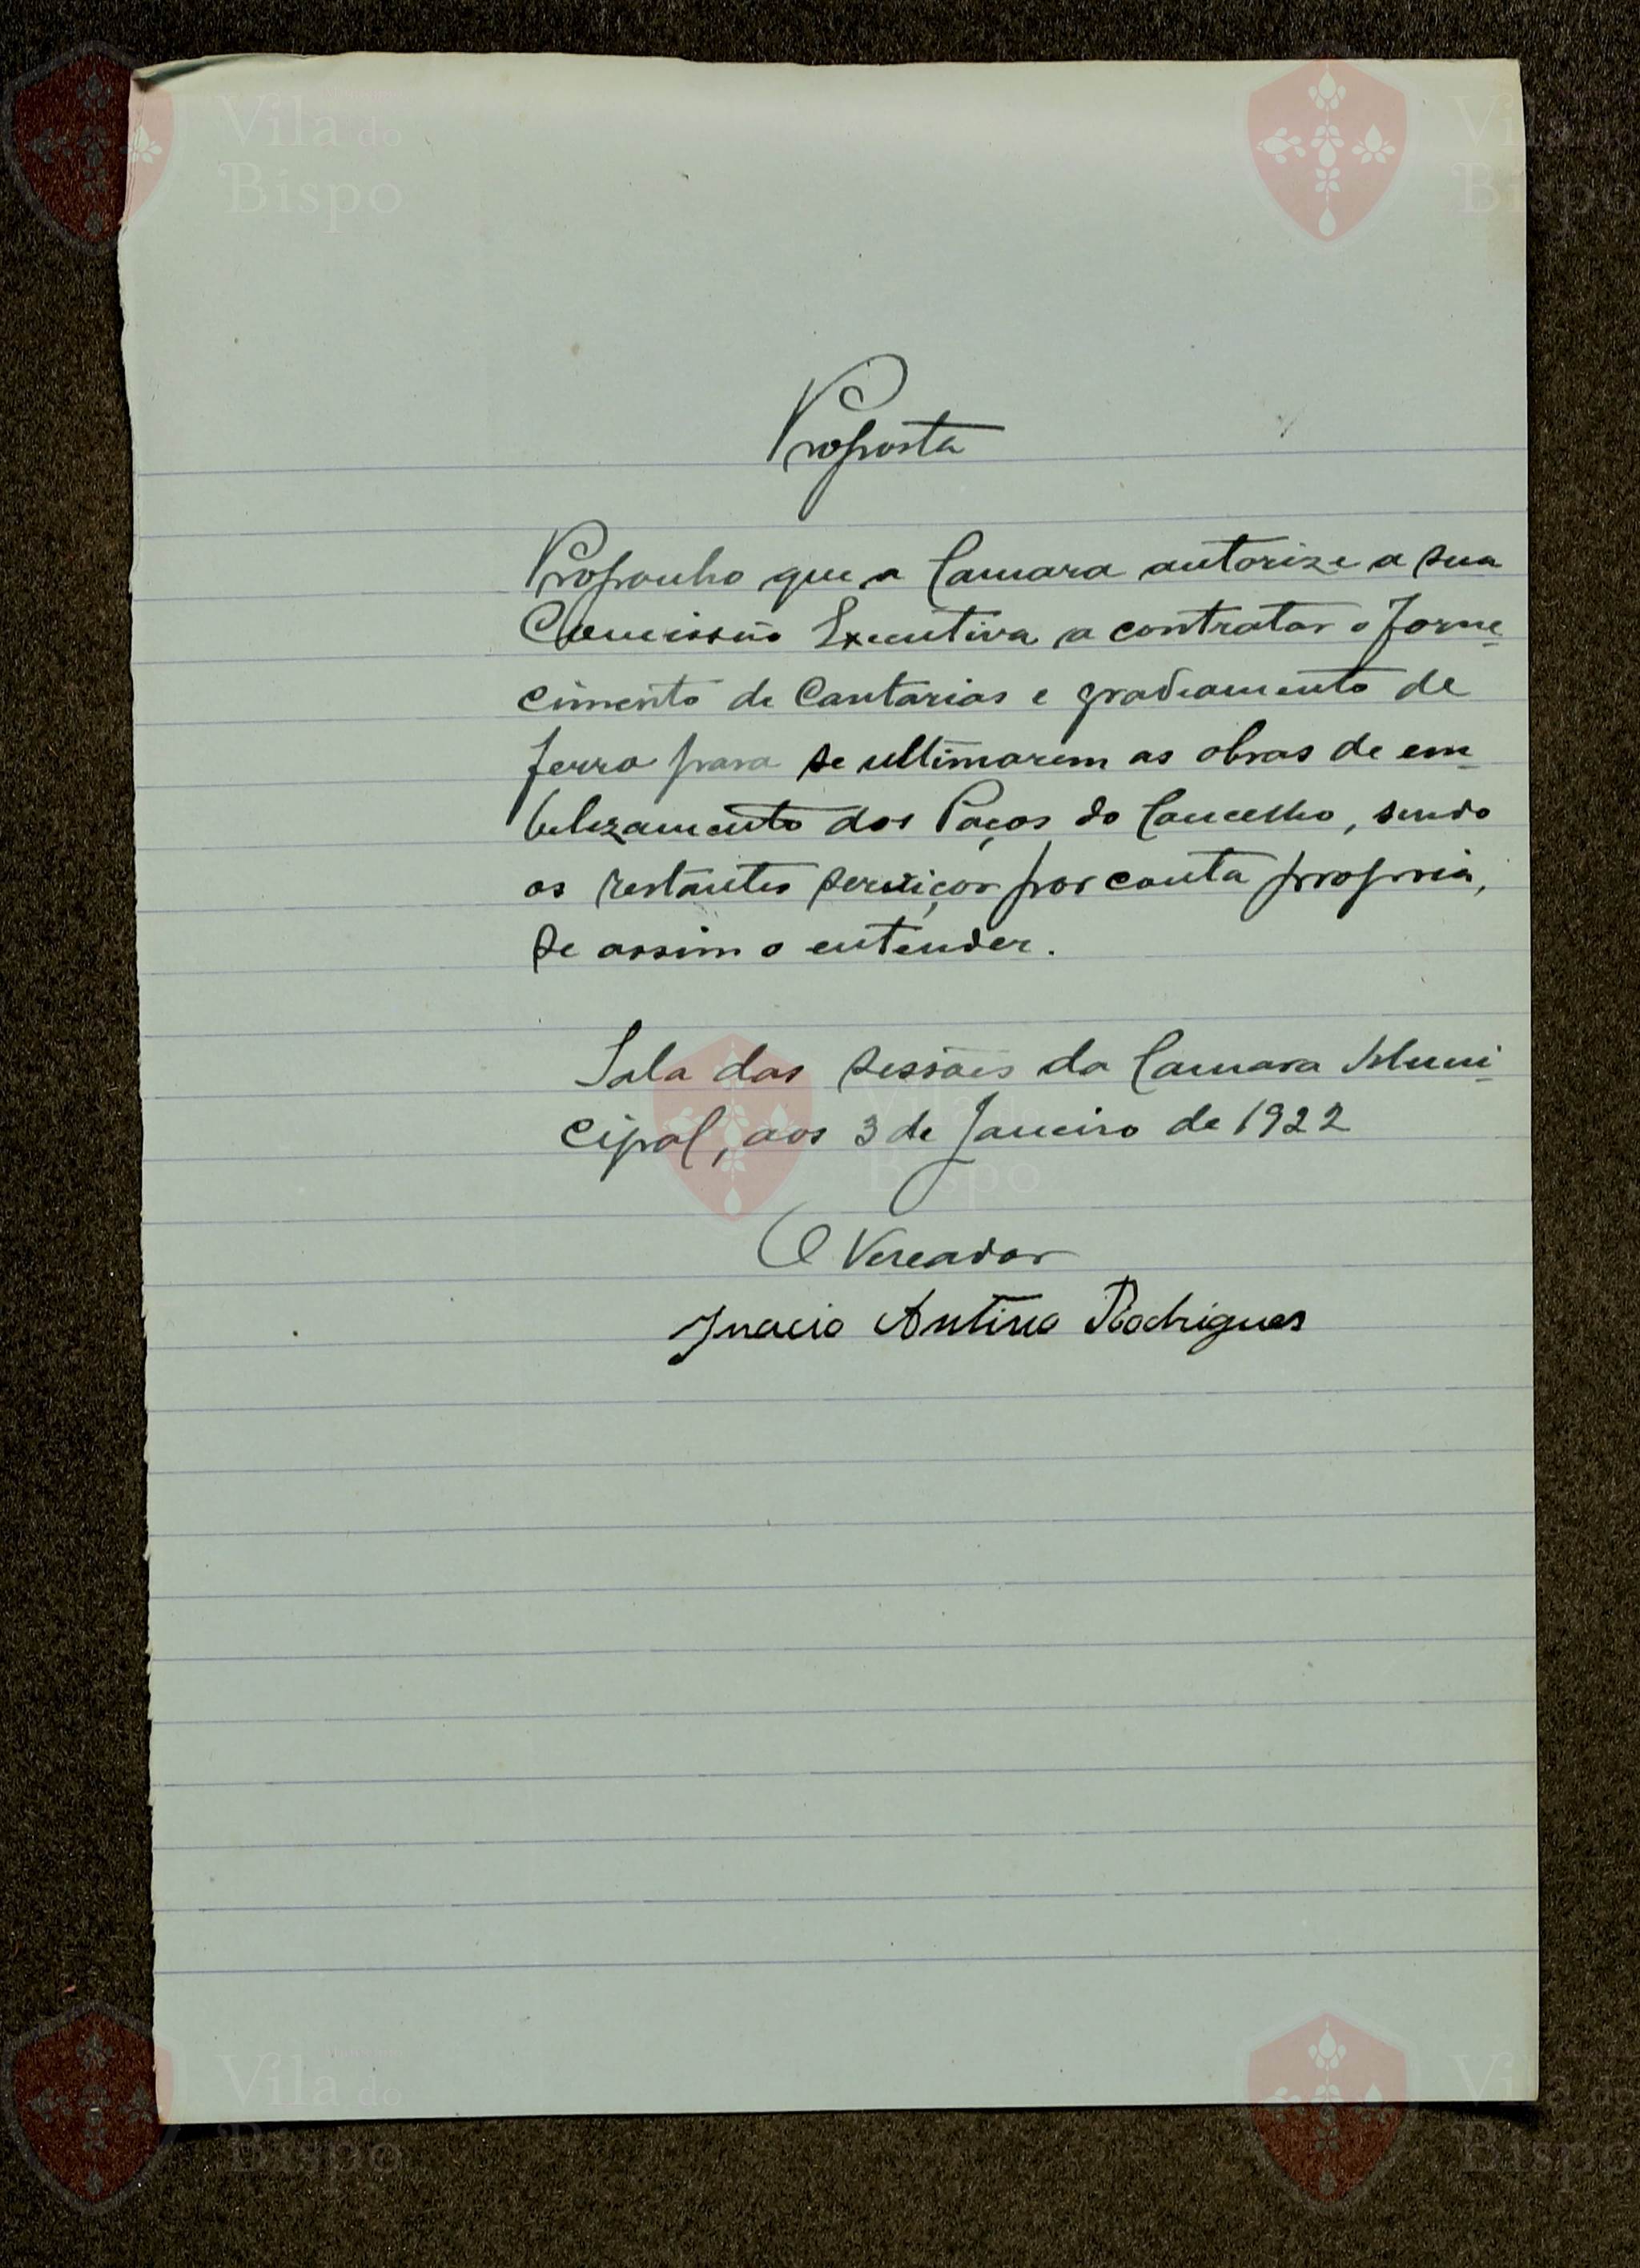 Vila do
Bispo
Vila do
Bispo
Proposta
Proponho que a Camara autorize a sua
Comissão Executiva a contratar o forne-
cimento de Cantarias e gradeamento de
ferro para se ultimarem as obras de em-
belezamento dos Paços do Concelho, sendo
os restantes serviços por conta propria,
se assim o entender.
Sala das sessões da Camara Muni-
cipal, aos 3 de Janeiro de 1922
Vila do
Bispo
O Vereador
Inacio Rodrigues
Vila do
Bispo
Vila do
Bispo